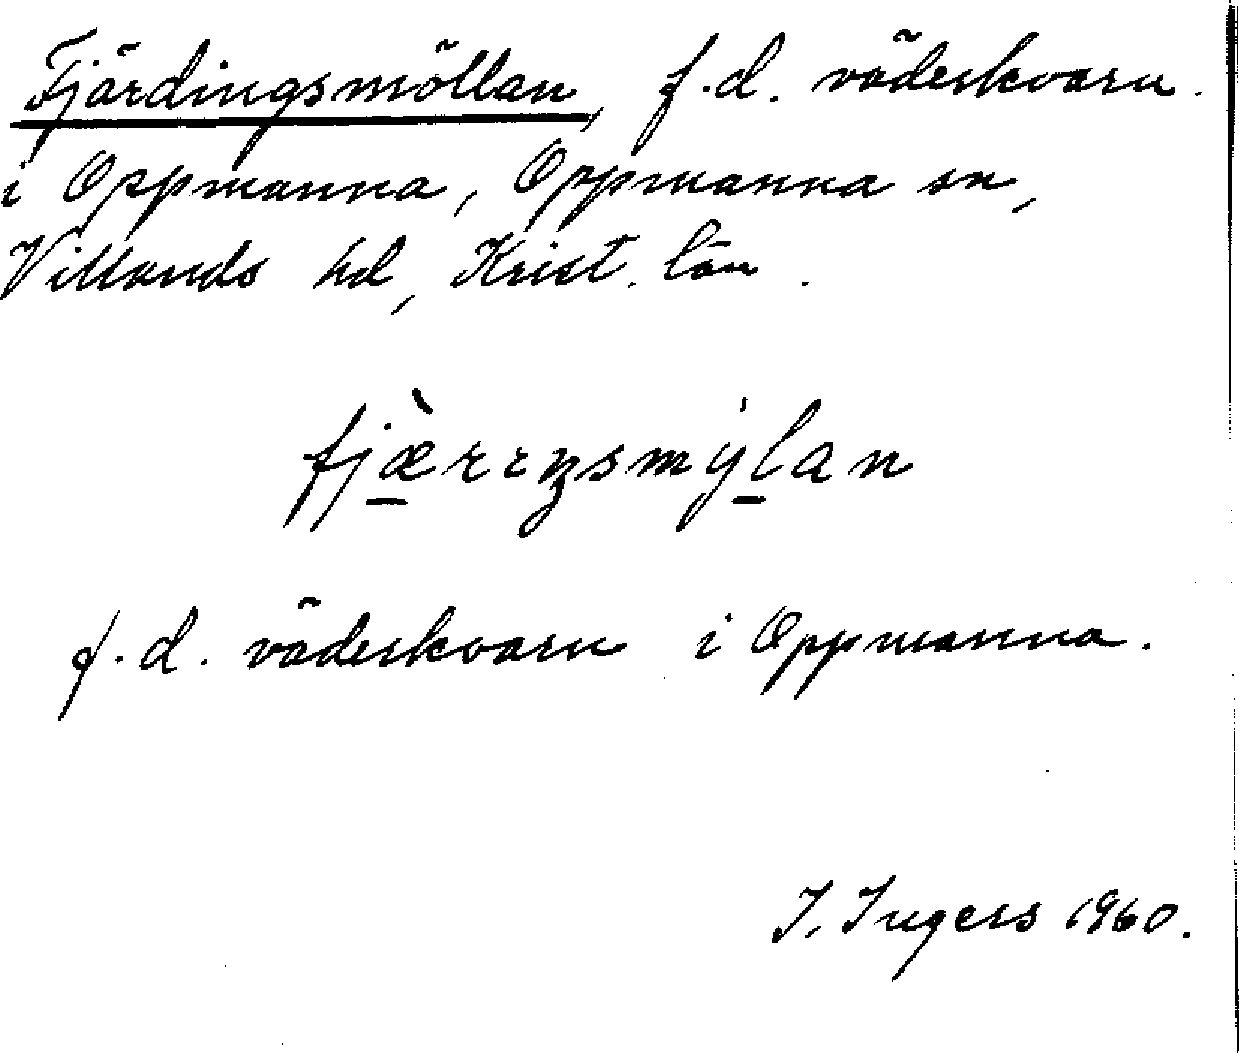 Fjärdingsmöllan, f.d. väderkvarn.
i Oppmanna, Oppmanna sn,
Villands hd, Krist. län.
fjæ̀rrıŋsmýlan
f.d. väderkvarn i Oppmanna.
I. Ingers 1960.